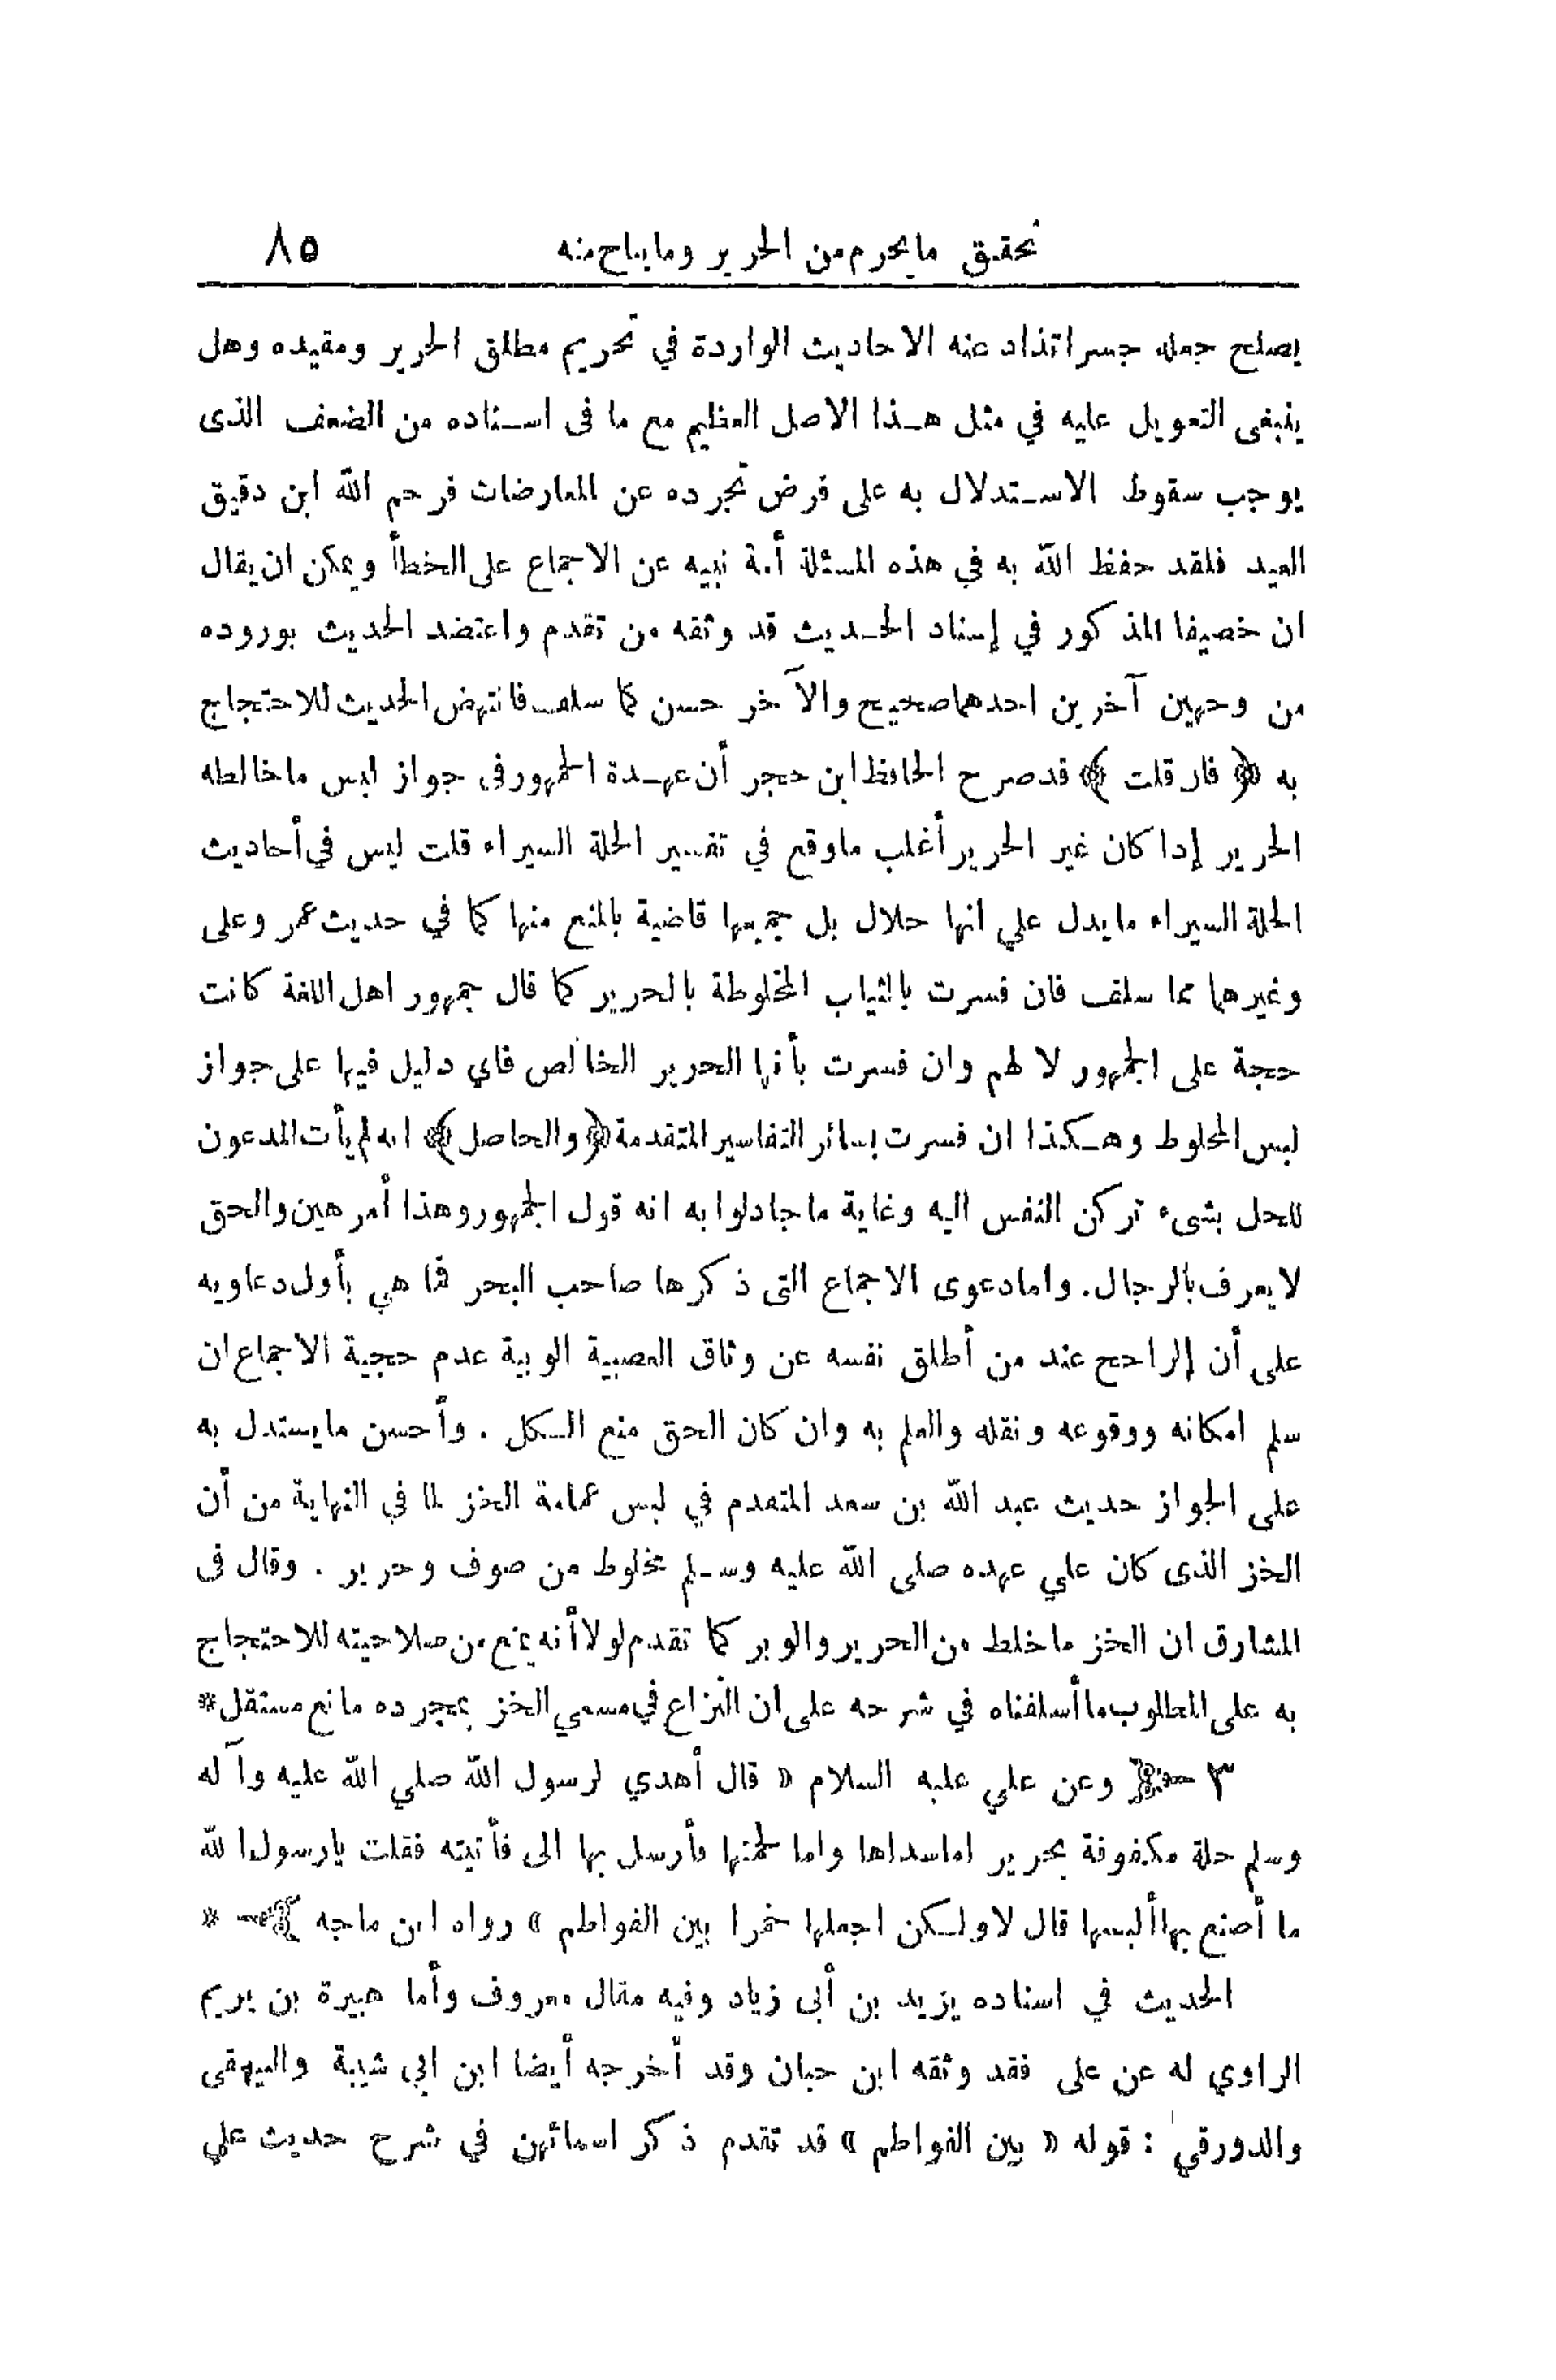 تحقيق ما يحرم من الحرير وما يباح منه ٨٥
يصلح جعله جسرا تذاد عنه الاحاديث الواردة في تحريم مطلق الحرير ومقيده وهل
ينبغى التعويل عليه في مثل هـذا الاصل العظيم مع ما فى اسـناده من الضعف الذى
يوجب سقوط الاسـتدلال به على فرض تجرده عن المعارضات فرحم الله ابن دقيق
العيد فلقد حفظ الله به في هذه المسئلة أمة نبيه عن الاجماع على الخطأ ويمكن ان يقال
ان خصيفا المذكور في إسناد الحـديث قد وثقه من تقدم واعتضد الحديث بوروده
من وجهين آخرين احدهما صحيح والآخر حسن كما سلف فانتهض الحديث للاحتجاج
به ﴿ فان قلت ﴾ قد صرح الحافظ ابن حجر أن عهـدة الجمهور فى جواز لبس ما خالطه
الحرير إذا كان غير الحرير أغلب ما وقع في تفسير الحلة السيراء قلت ليس في أحاديث
الحلة السيراء ما يدل علي انها حلال بل جميعها قاضية بالمنع منها كما في حديث عمر وعلى
وغيرهما مما سلف فان فسرت بالثياب المخلوطة بالحرير كما قال جمهور اهل اللغة كانت
حجة على الجمهور لا لهم وان فسرت بأنها الحرير الخالص فاي دليل فيها على جواز
لبس المخلوط وهـكذا ان فسرت بسائر التفاسير المتقدمة ﴿ والحاصل ﴾ انه لم يأت المدعون
للحل بشىء تركن النفس اليه وغاية ما جادلوا به انه قول الجمهور وهذا أمر هين والحق
لا يعرف بالرجال. واما دعوى الاجماع التى ذكرها صاحب البحر فما هي بأول دعاويه
على أن الراجح عند من أطلق نفسه عن وثاق العصبية الوبية عدم حجية الاجماع ان
سلم امكانه ووقوعه ونقله والعلم به وان كان الحق منع الـكل . وأحسن ما يستدل به
على الجواز حديث عبد الله بن سعد المتقدم في لبس عمامة الخز لما في النهاية من أن
الخز الذى كان علي عهده صلى الله عليه وسـلم مخلوط من صوف وحرير . وقال فى
المشارق ان الخز ما خلط من الحرير والوبر كما تقدم لولا أنه يمنع من صلاحيته للاحتجاج
به على المطلوب ما أسلفناه في شرحه على ان النزاع في مسمي الخز بمجرده مانع مستقل *
٣ وعن علي عليه السلام « قال أهدي لرسول الله صلي الله عليه وآله
وسلم حلة مكفوفة بحرير اما سداها واما لحمتها فأرسل بها الى فأتيته فقلت يا رسول الله
ما أصنع بها ألبسها قال لا ولـكن اجعلها خمرا بين الفواطم » رواه ابن ماجه *
الحديث في اسناده يزيد بن أبى زياد وفيه مقال معروف وأما هبيرة بن يريم
الراوي له عن على فقد وثقه ابن حبان وقد أخرجه أيضا ابن ابي شيبة والبيهقى
والدورقي : قوله « بين الفواطم » قد تقدم ذكر اسمائهن في شرح حديث علي